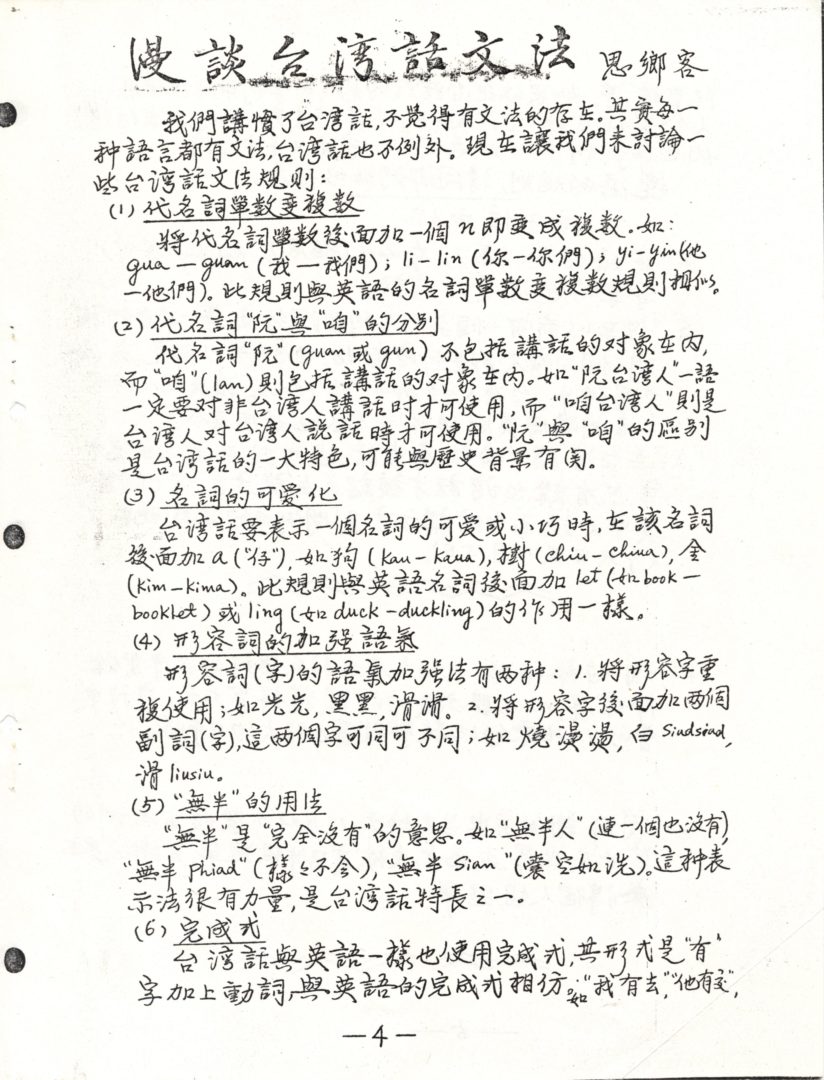 漫談台湾話文法 思鄉客
我們講慣了台湾話,不覺得有文法的存在。其實每一
种語言都有文法,台湾話也不例外。現在讓我們来討論一
些台湾話文法規則:
(1) 代名詞單数变複数
將代名詞單数後面加一個n即变成複数。如:
gua — guan (我 — 我們); li - lin (你 - 你們); yi - yin (他
— 他們)。此規則與英語的名詞單数变複数規則相似。
(2) 代名詞"阮"與"咱"的分別
代名詞"阮"(guan 或 gun) 不包括講話的对象在内,
而"咱"(lan)則包括講話的对象在内。如"阮台湾人"一語
一定要对非台湾人講話时才可使用,而"咱台湾人"則是
台湾人对台湾人説話時才可使用。"阮"與"咱"的區別
是台湾話的一大特色,可能與歷史背景有関。
(3) 名詞的可愛化
台湾話要表示一個名詞的可爱或小巧時,在該名詞
後面加 a ("仔"),如狗 (kau - kaua), 樹 (chiu - chiua), 金
(kim - kima)。此規則與英語名詞後面加 let (如 book —
booklet) 或 ling (如 duck - duckling) 的作用一樣。
(4) 形容詞的加强語氣
形容詞(字)的語氣加强法有两种: 1. 將形容字重
複使用;如光光,黑黑,滑滑。2. 將形容字後面加两個
副詞(字),這两個字可同可不同;如燒燙燙,白 Siudsiad,
滑 liusiu。
(5) "無半"的用法
"無半"是"完全沒有"的意思。如"無半人"(連一個也沒有),
"無半 phiad"(樣々不会),"無半 Sian"(囊空如洗)。這种表
示法很有力量,是台湾話特長之一。
(6) 完成式
台湾話與英語一樣也使用完成式,其形式是"有"
字加上動詞,與英語的完成式相仿。如"我有去","他有
— 4 —